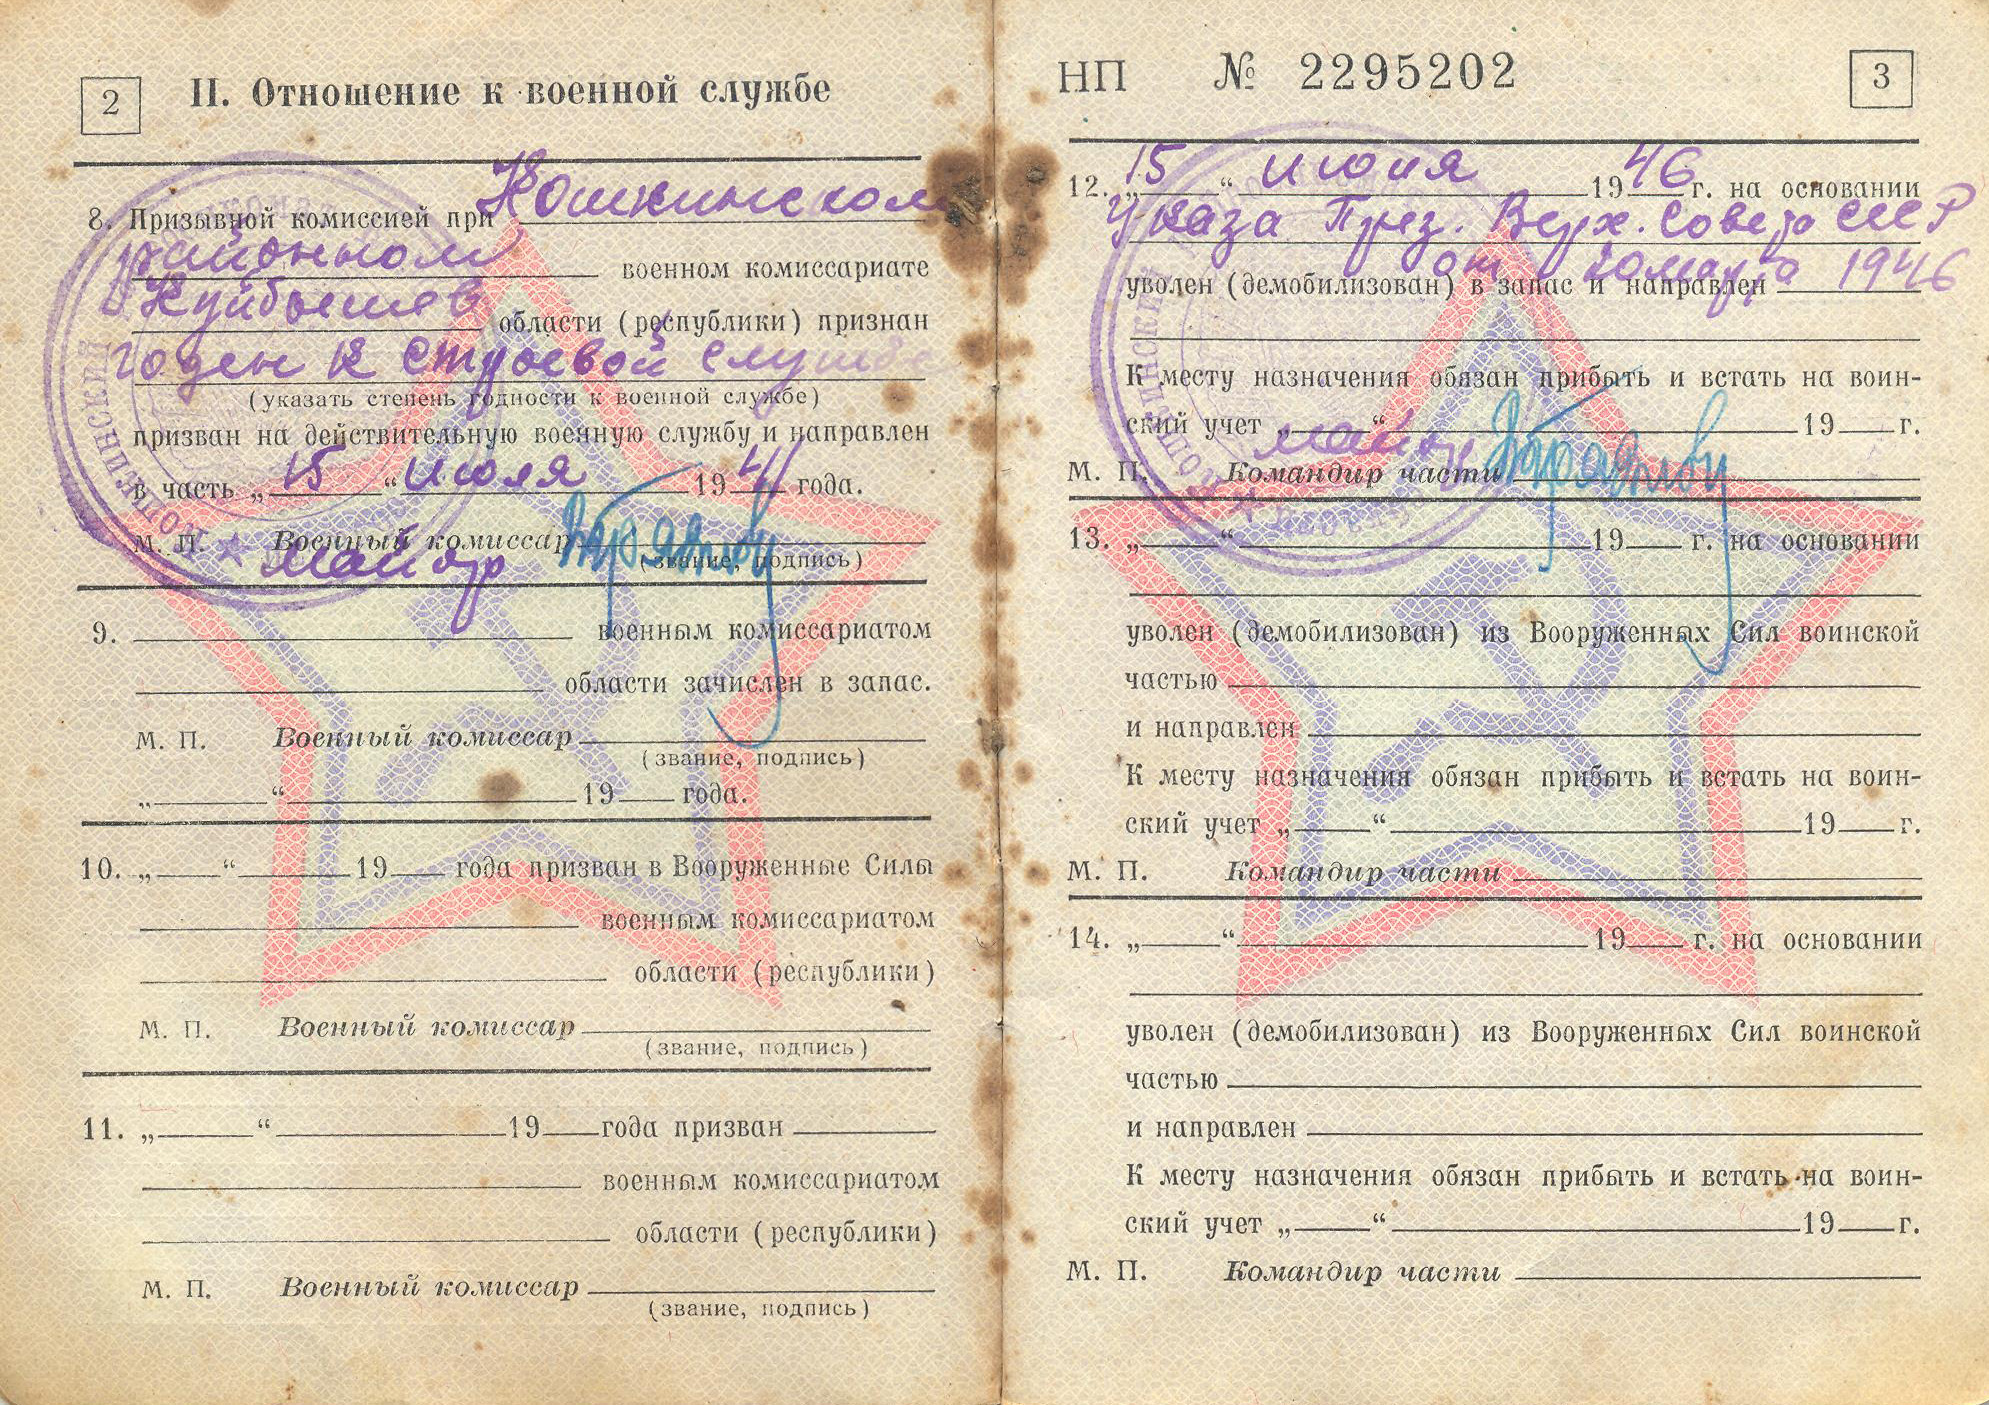 2
II. Отношение к военной службе
8. Призывной комиссией при Кошкинском
районном военном комиссариате
Куйбышев области (республики) признан
годен к строевой службе
(указать степень годности к военной службе)
призван на действительную военную службу и направлен
в часть „15“ июля 1941 года.
М. П. Военный комиссар
майор (звание, подпись)
9. военным комиссариатом
области зачислен в запас.
М. П. Военный комиссар
(звание, подпись)
„ “ 19 года.
10. „ “ 19 года призван в Вооруженные Силы
военным комиссариатом
области (республики)
М. П. Военный комиссар
(звание, подпись)
11. „ “ 19 года призван
военным комиссариатом
области (республики)
М. П. Военный комиссар
(звание, подпись)
НП № 2295202
3
12. „15“ июня 1946 г. на основании
Указа През. Верх. Совета СССР
от 20 марта 1946
уволен (демобилизован) в запас и направлен
К месту назначения обязан прибыть и встать на воин-
ский учет „ “ 19 г.
майор
М. П. Командир части
13. „ “ 19 г. на основании
уволен (демобилизован) из Вооруженных Сил воинской
частью
и направлен
К месту назначения обязан прибыть и встать на воин-
ский учет „ “ 19 г.
М. П. Командир части
14. „ “ 19 г. на основании
уволен (демобилизован) из Вооруженных Сил воинской
частью
и направлен
К месту назначения обязан прибыть и встать на воин-
ский учет „ “ 19 г.
М. П. Командир части